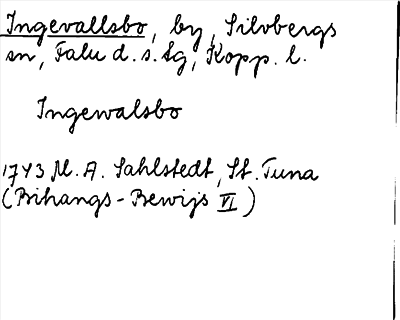 Ingevallsbo, by, Silvbergs
sn, Falu d. s. tg, Kopp. l.
Ingewalsbo
1743 M. A. Sahlstedt, St. Tuna
(Bihangs-Bewijs VI)